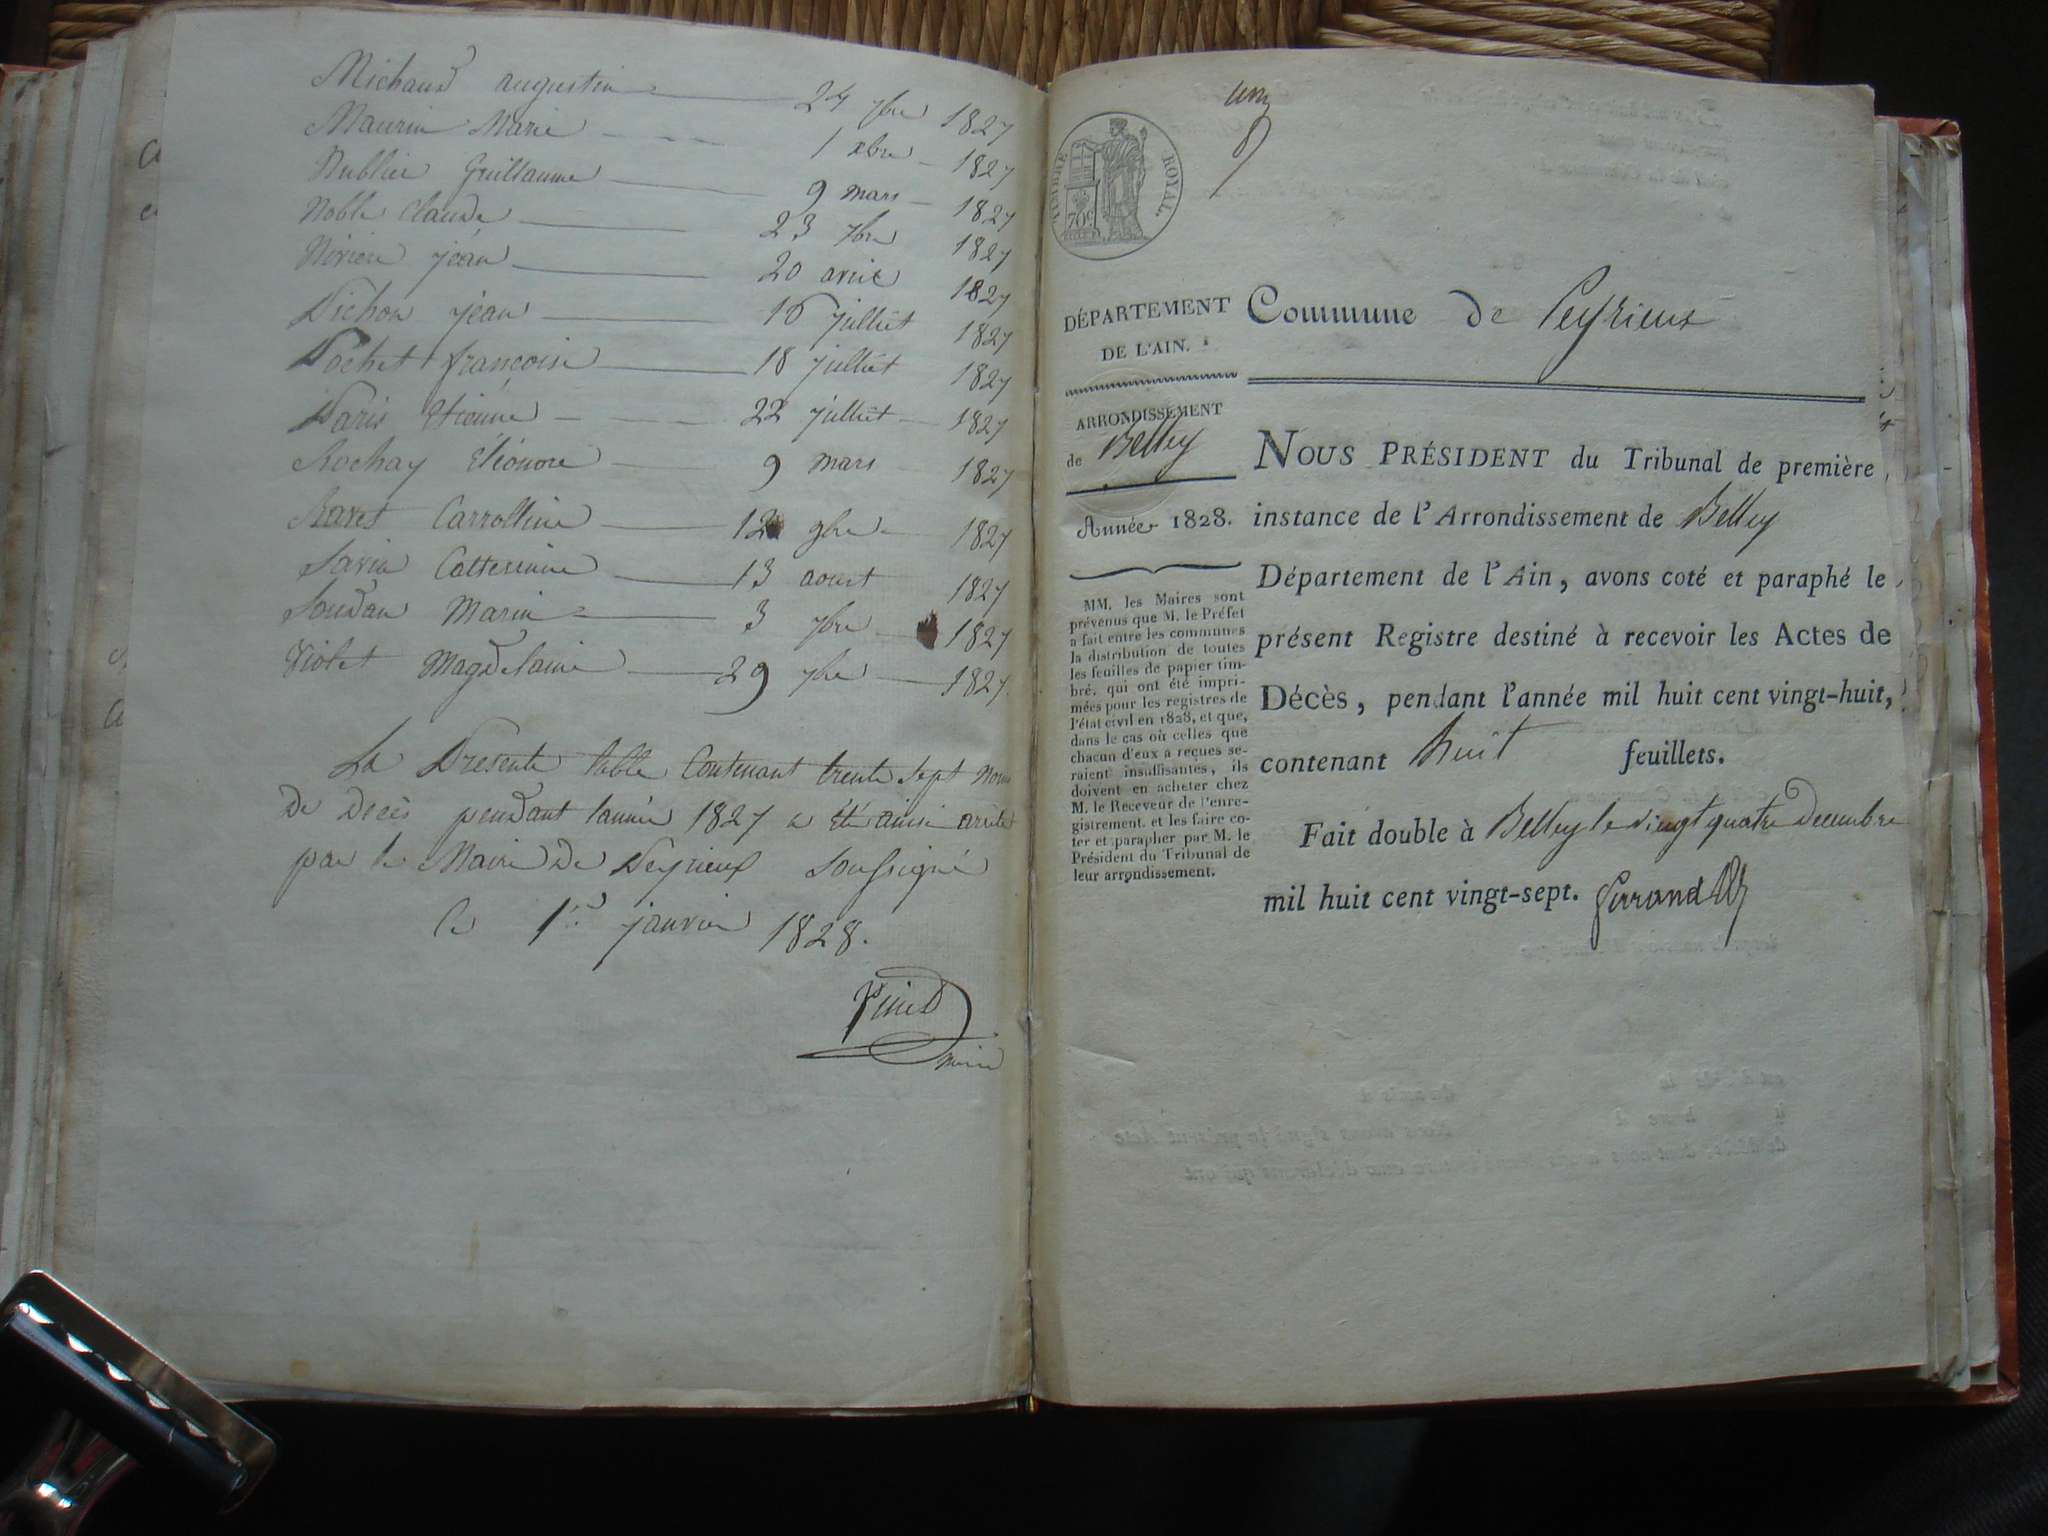 Michaud augustin 24 7bre 1827
Maurin Marie 1 xbre 1827
Nublier Guillaume 9 mars 1827
Noble Claude 23 7bre 1827
jean 20 avril 1827
Pichon jean 16 juillet 1827
Pochet françoise 18 juillet 1827
Paris Etienne 22 juillet 1827
Rochay Eléonore 9 mars 1827
Ravet Carrolline 12 9bre 1827
Savin Catterinne 13 aout 1827
Soudan Marin 3 7bre 1827
Violet Magdelaine 29 7bre 1827
La Presente table Contenant trente sept Noms
De Decès pendant lannée 1827 a Eté ainsi arrêté
par le Maire De Peyrieux Soussigné
le 1er janvier 1828.
maire
TIMBRE ROYAL.
70c
DÉPARTEMENT
DE L'AIN.
ARRONDISSEMENT
de Belley
Année 1828.
MM. les Maires sont
prévenus que M. le Préfet
a fait entre les communes
la distribution de toutes
les feuilles de papier tim-
bré, qui ont été impri-
mées pour les registres de
l'état civil en 1828, et que,
dans le cas où celles que
chacun d'eux a reçues se-
raient insuffisantes, ils
doivent en acheter chez
M. le Receveur de l'enre-
gistrement, et les faire co-
ter et parapher par M. le
Président du Tribunal de
leur arrondissement.
Commune de Peyrieux
NOUS PRÉSIDENT du Tribunal de première
instance de l'Arrondissement de Belley
Département de l'Ain, avons coté et paraphé le
présent Registre destiné à recevoir les Actes de
Décès, pendant l'année mil huit cent vingt-huit,
contenant huit feuillets.
Fait double à Belley le vingt quatre Decembre
mil huit cent vingt-sept.